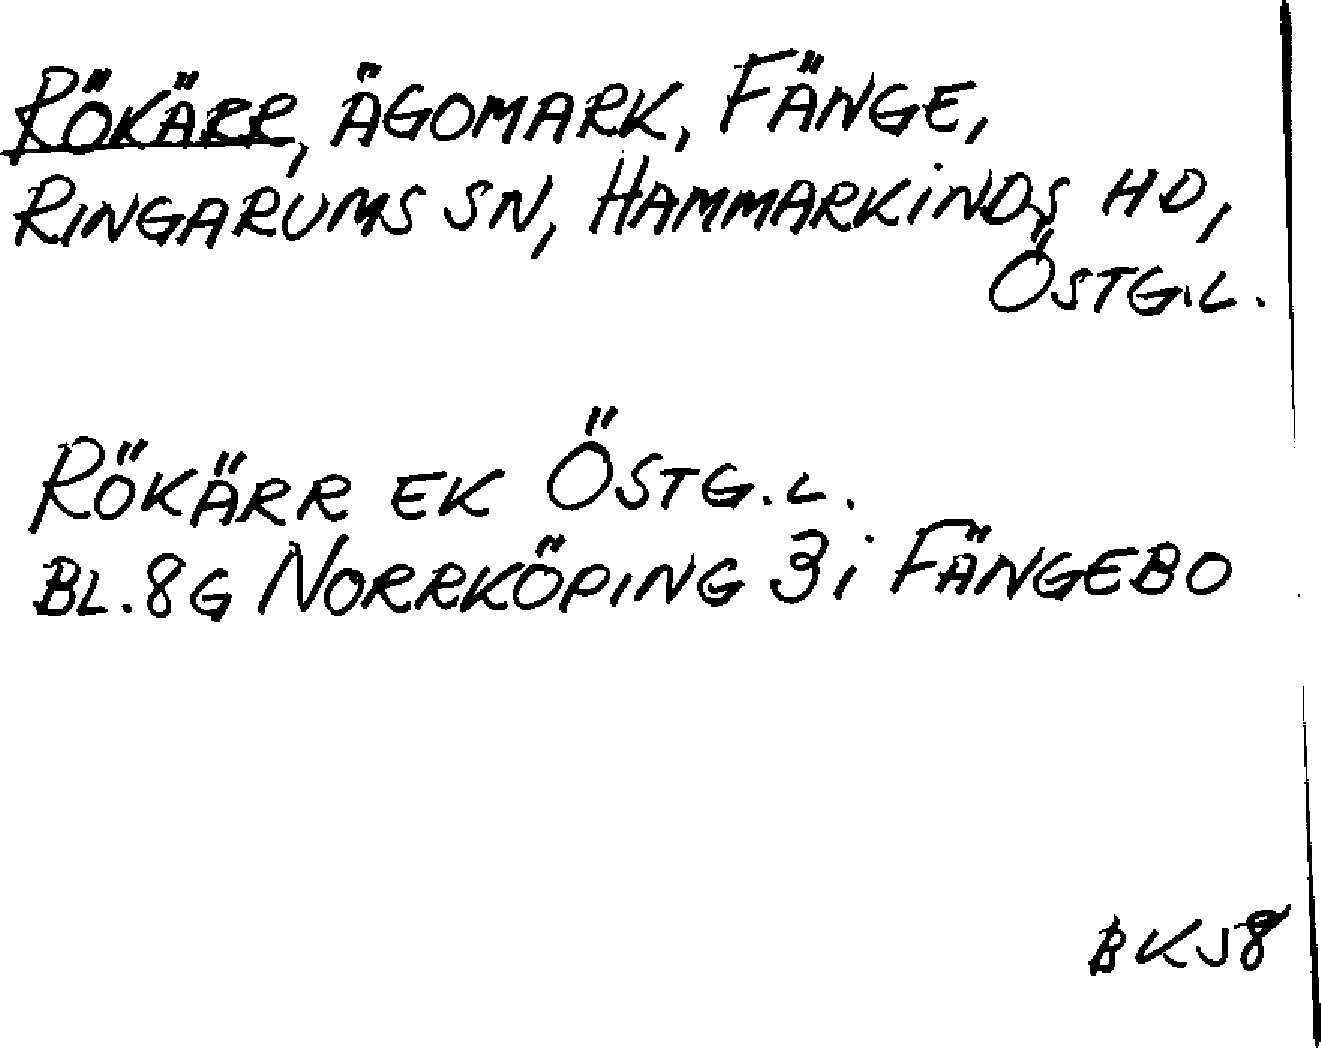 RÖKÄRR, ÄGOMARK, FÄNGE,
RINGARUMS SN, HAMMARKINDS HD,
ÖSTG.L.
RÖKÄRR EK ÖSTG.L.
BL. 8G NORRKÖPING 3i FÄNGEBO